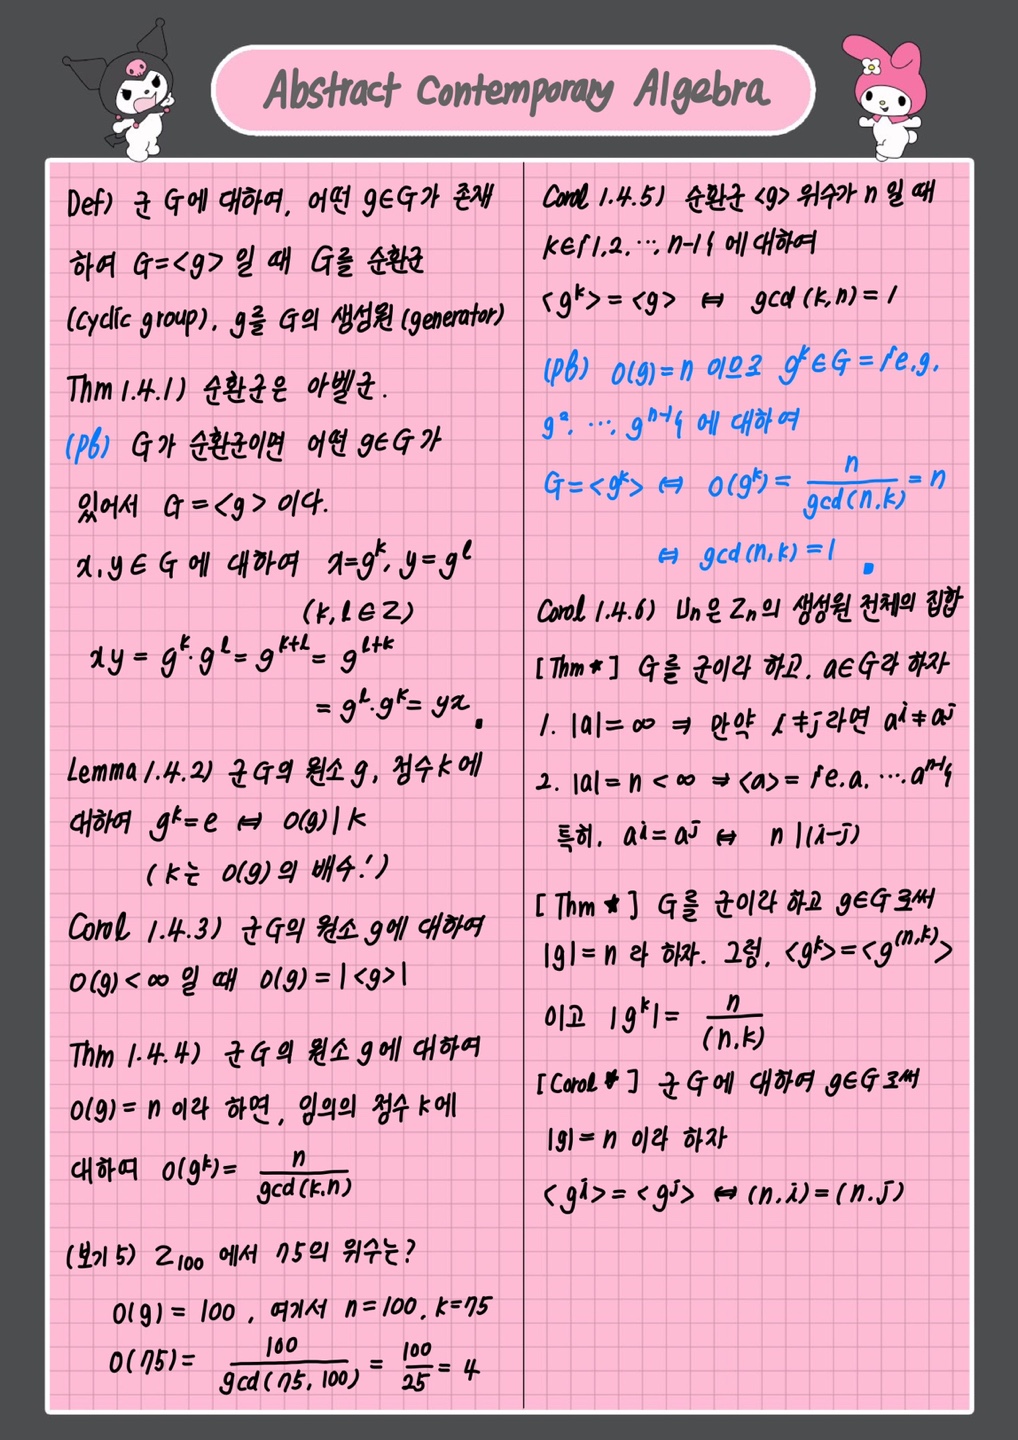 Abstract Contemporary Algebra
Def) 군 G에 대하여, 어떤 g∈G가 존재
하여 G=<g> 일 때 G를 순환군
(cyclic group), g를 G의 생성원(generator)
Thm 1.4.1) 순환군은 아벨군.
(pf) G가 순환군이면 어떤 g∈G가
있어서 G=<g> 이다.
x,y∈G에 대하여 x=g^k, y=g^l
(k,l∈Z)
xy = g^k·g^l = g^{k+l} = g^{l+k}
= g^l·g^k = yx ▪
Lemma 1.4.2) 군 G의 원소 g, 정수 k에
대하여 g^k=e ⇔ O(g)|k
(k는 O(g)의 배수!)
Corol 1.4.3) 군 G의 원소 g에 대하여
O(g)<∞ 일 때 O(g)=|<g>|
Thm 1.4.4) 군 G의 원소 g에 대하여
O(g)=n 이라 하면, 임의의 정수 k에
대하여 O(g^k)= n/gcd(k,n)
(보기 5) Z₁₀₀ 에서 75의 위수는?
O(g)=100, 여기서 n=100, k=75
O(75)= 100/gcd(75,100) = 100/25 = 4
Corol 1.4.5) 순환군 <g> 위수가 n 일 때
k∈{1,2,…,n-1} 에 대하여
<g^k>=<g> ⇔ gcd(k,n)=1
(pf) O(g)=n 이므로 g^k∈G={e,g,
g²,…,g^{n-1}} 에 대하여
G=<g^k> ⇔ O(g^k)= n/gcd(n,k) = n
⇔ gcd(n,k)=1 ▪
Corol 1.4.6) Uₙ은 Zₙ의 생성원 전체의 집합
[Thm★] G를 군이라 하고, a∈G라 하자
1. |a|=∞ ⇒ 만약 i≠j라면 a^i≠a^j
2. |a|=n<∞ ⇒ <a>={e,a,…,a^{n-1}}
특히, a^i=a^j ⇔ n|(i-j)
[Thm★] G를 군이라 하고 g∈G로써
|g|=n 라 하자. 그럼, <g^k>=<g^{(n,k)}>
이고 |g^k|= n/(n,k)
[Corol★] 군 G에 대하여 g∈G로써
|g|=n 이라 하자
<g^i>=<g^j> ⇔ (n,i)=(n,j)